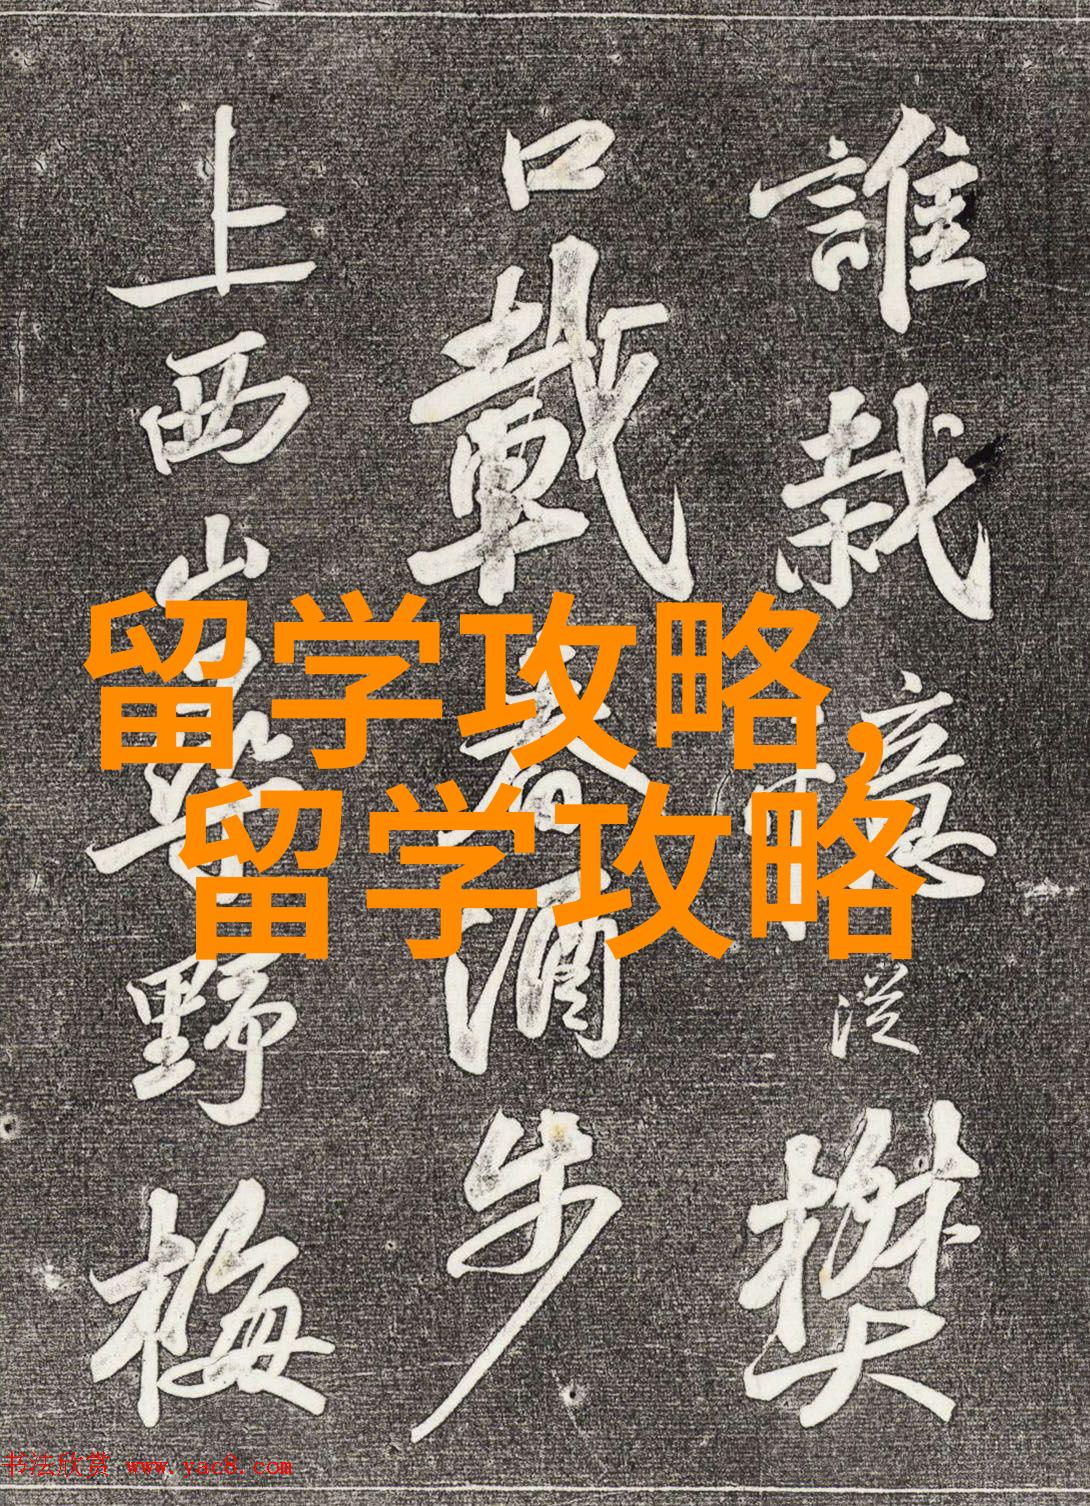 誰栽憶從樊
口載春酒步
上西山尋野梅
留学攻略,
留学攻略
书法欣赏 www.yac8.com